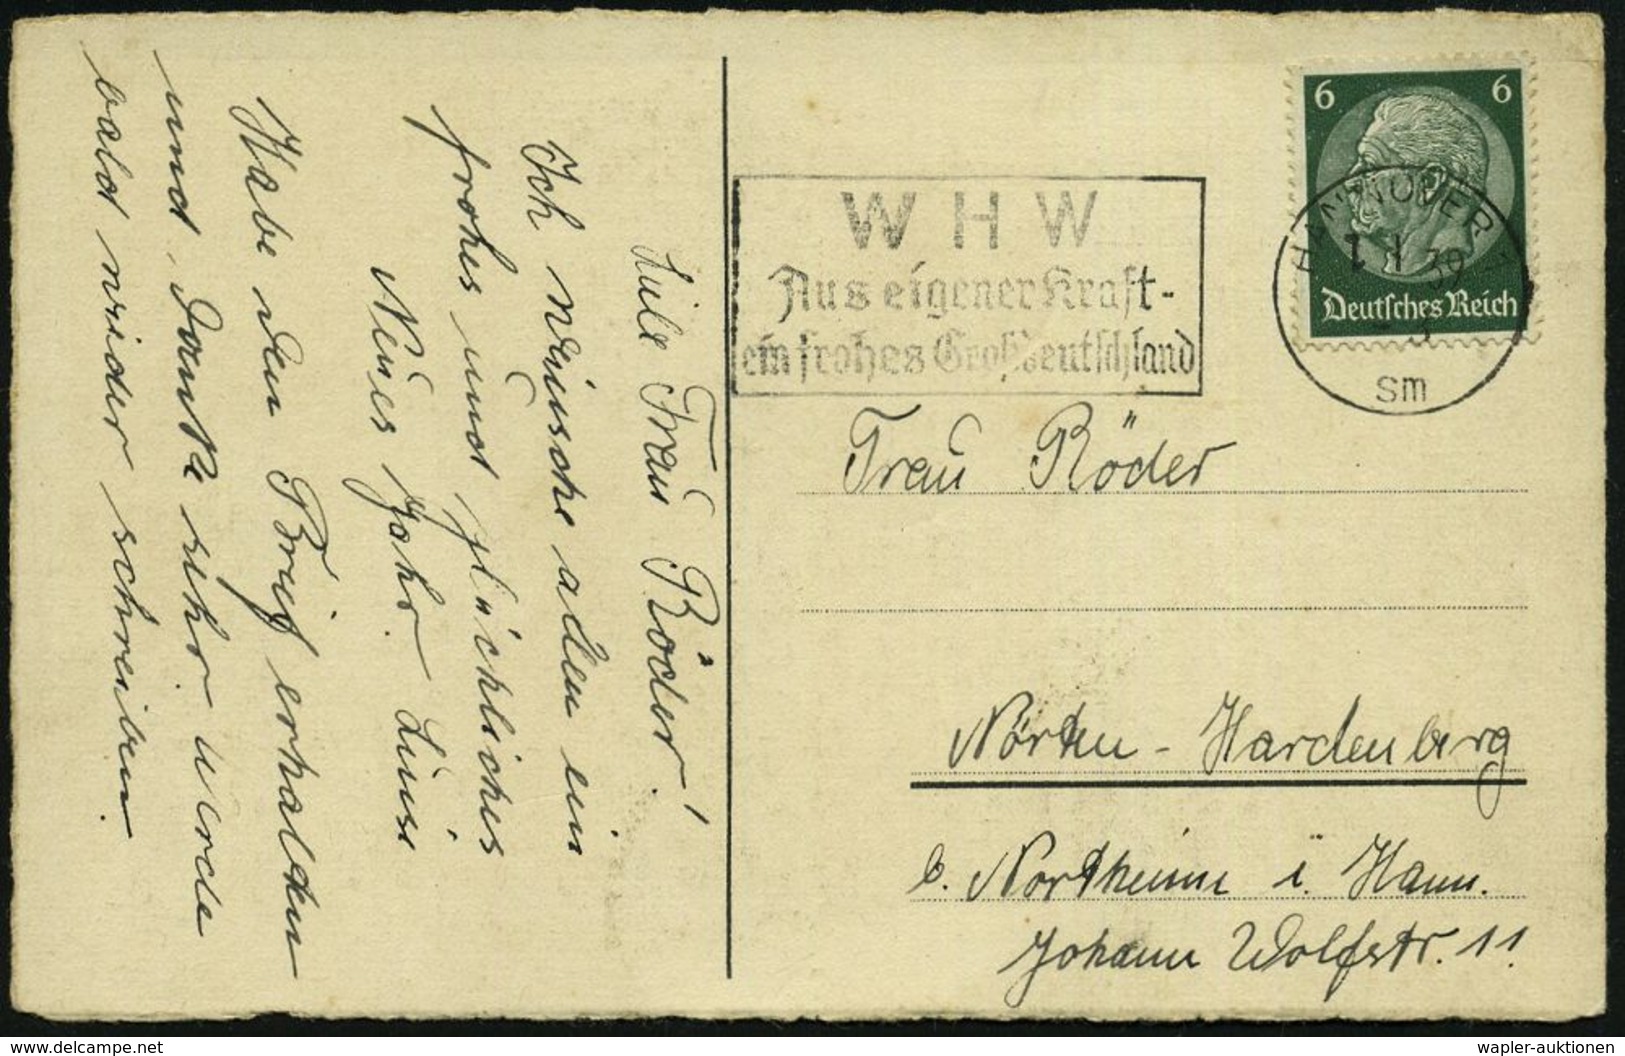 Liebe Frau Röder!
Ich wünsche allen ein
frohes und glückliches
Neues Jahr. Luise
Habe den Brief erhalten
und danke sehr werde
bald wieder schreiben.
6 6
Deutsches Reich
HANNOVER
1 39
sm
W H W
Aus eigener Kraft-
ein frohes Großdeutschland
Frau Röder
Nörten-Hardenberg
b. Northeim i. Hann.
Johann Wolfstr. 11.
delcampe.net
wapler-auktionen